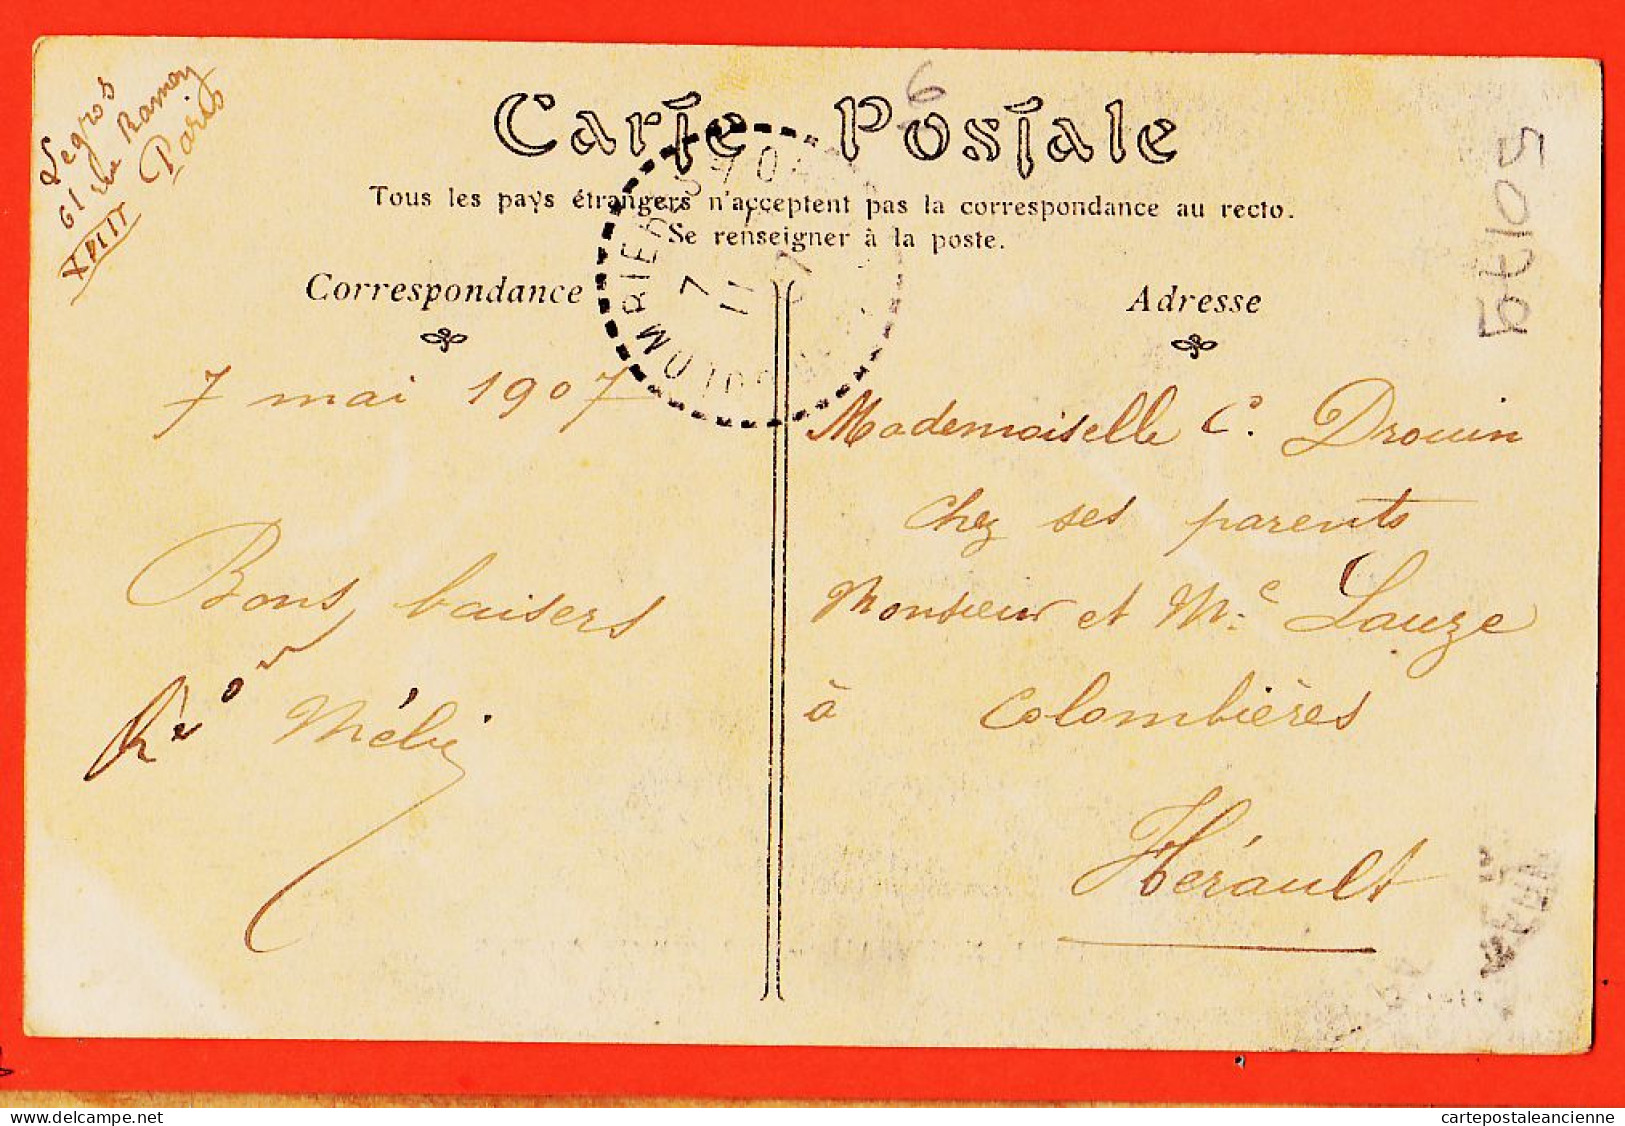 Legros
61 rue Ramey
Paris
XVIII
Carte Postale
Tous les pays étrangers n'acceptent pas la correspondance au recto.
Se renseigner à la poste.
Correspondance
Adresse
7 mai 1907
Bons baisers
Mélie
Mademoiselle C. Drouin
chez ses parents
Monsieur et Mme Lauze
à Colombières
Hérault
7
11
6
cartepostaleancienne